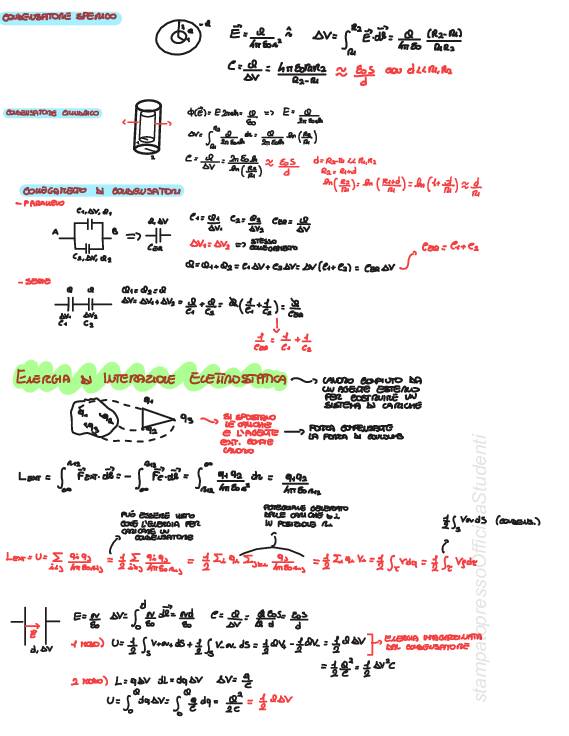 CONDENSATORE SFERICO
-Q
E⃗ = Q/4πε₀r² n̂   ΔV = ∫_{R₁}^{R₂} E⃗·dl⃗ = Q/4πε₀ (R₂-R₁)/R₁R₂
C = Q/ΔV = 4πε₀R₁R₂/R₂-R₁ ≈ ε₀S/d CON d<<R₁,R₂
CONDENSATORE CILINDRICO
Φ(E⃗) = E 2πrh = Q/ε₀ => E = Q/2πε₀rh
ΔV = ∫_{R₁}^{R₂} Q/2πε₀rh dr = Q/2πε₀h ln(R₂/R₁)
C = Q/ΔV = 2πε₀h/ln(R₂/R₁) ≈ ε₀S/d   d = R₂-R₁ << R₁,R₂
R₂ = R₁+d
ln(R₂/R₁) = ln(R₁+d/R₁) = ln(1+d/R₁) ≈ d/R₁
COLLEGAMENTO DI CONDENSATORI
- PARALLELO
C₁, ΔV, Q₁
A B => Q, ΔV
C₂, ΔV, Q₂ C_EQ
C₁ = Q₁/ΔV₁ C₂ = Q₂/ΔV₂ C_EQ = Q/ΔV
ΔV₁ = ΔV₂ => STESSO COLLEGAMENTO
C_EQ = C₁+C₂
Q = Q₁+Q₂ = C₁ΔV+C₂ΔV = ΔV(C₁+C₂) = C_EQ ΔV
- SERIE
Q Q
ΔV₁ ΔV₂
C₁ C₂
Q₁ = Q₂ = Q
ΔV = ΔV₁+ΔV₂ = Q/C₁ + Q/C₂ = Q(1/C₁ + 1/C₂) = Q/C_EQ
1/C_EQ = 1/C₁ + 1/C₂
ENERGIA DI INTERAZIONE ELETTROSTATICA
LAVORO COMPIUTO DA
UN AGENTE ESTERNO
PER COSTRUIRE UN
SISTEMA DI CARICHE
q₁ q₂ q₃
q₁ q₂ q₃
SI SPOSTANO
LE CARICHE
E L'AGENTE
EXT. COMPIE
LAVORO
FORZA COMPENSANTE
LA FORZA DI COULOMB
L_EXT = ∫_∞^{r₁₂} F⃗_EXT·dl⃗ = - ∫_∞^{r₁₂} F⃗_C·dl⃗ = ∫_{r₁₂}^∞ q₁q₂/4πε₀r² dr = q₁q₂/4πε₀r₁₂
PUÒ ESSERE VISTO
COME L'ENERGIA PER
CARICARE UN
CONDENSATORE
POTENZIALE GENERATO
DALLE CARICHE
IN POSIZIONE
1/2 ∫_S VσdS (CONDENS.)
L_EXT = U = Σ_{i<j} qᵢqⱼ/4πε₀rᵢⱼ = 1/2 Σ_{i≠j} qᵢqⱼ/4πε₀rᵢⱼ = 1/2 Σᵢ qᵢ Σ_{j≠i} qⱼ/4πε₀rᵢⱼ = 1/2 Σᵢ qᵢ Vᵢ = 1/2 ∫_τ Vdq = 1/2 ∫_τ Vρdτ
E⃗
d, ΔV
E = σ/ε₀ ΔV = ∫₀^d σ/ε₀ dl = σd/ε₀ C = Q/ΔV = Q ε₀S/Q d = ε₀S/d
1 MODO) U = 1/2 ∫_S V₊σ₊dS + 1/2 ∫_S V₋σ₋dS = 1/2 QV₊ - 1/2 QV₋ = 1/2 QΔV
ENERGIA IMMAGAZZINATA
DAL CONDENSATORE
= 1/2 Q²/C = 1/2 ΔV²C
2 MODO) L = qΔV dL = dqΔV ΔV = q/C
U = ∫₀^Q dqΔV = ∫₀^Q q/C dq = Q²/2C = 1/2 QΔV
stampatopressoOfficinaStudenti